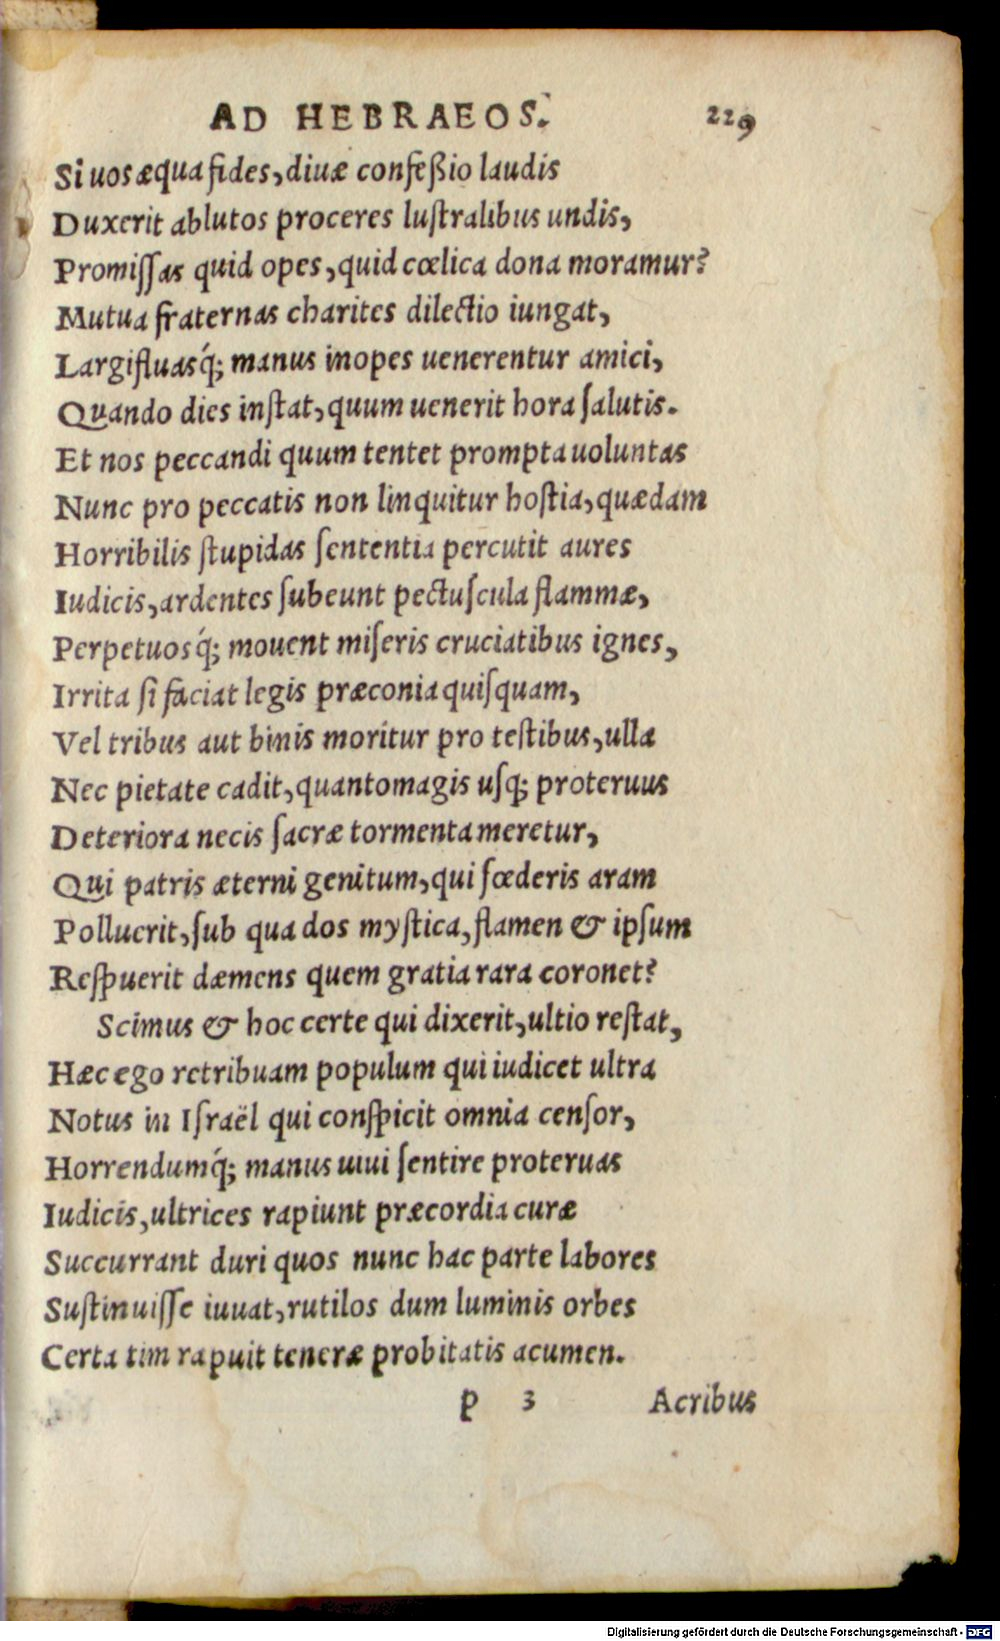 AD HEBRAEOS. 229
Si uos æqua fides, diuæ confeßio laudis
Duxerit ablutos proceres luſtralibus undis,
Promiſſas quid opes, quid cœlica dona moramur?
Mutua fraternas charites dilectio iungat,
Largifluasq́; manus inopes uenerentur amici,
Quando dies inſtat, quum uenerit hora ſalutis.
Et nos peccandi quum tentet prompta uoluntas
Nunc pro peccatis non linquitur hoſtia, quædam
Horribilis ſtupidas ſententia percutit aures
Iudicis, ardentes ſubeunt pectuſcula flammæ,
Perpetuosq́; mouent miſeris cruciatibus ignes,
Irrita ſi faciat legis præconia quiſquam,
Vel tribus aut binis moritur pro teſtibus, ulla
Nec pietate cadit, quantomagis uſq; proteruus
Deteriora necis ſacræ tormenta meretur,
Qui patris æterni genitum, qui fœderis aram
Polluerit, ſub qua dos myſtica, flamen & ipſum
Reſpuerit dæmens quem gratia rara coronet?
Scimus & hoc certe qui dixerit, ultio reſtat,
Hæc ego retribuam populum qui iudicet ultra
Notus in Iſraël qui conſpicit omnia cenſor,
Horrendumq́; manus uiui ſentire proteruas
Iudicis, ultrices rapiunt præcordia curæ
Succurrant duri quos nunc hac parte labores
Suſtinuiſſe iuuat, rutilos dum luminis orbes
Certa tim rapuit teneræ probitatis acumen.
p 3 Acribus
Digitalisierung gefördert durch die Deutsche Forschungsgemeinschaft - DFG